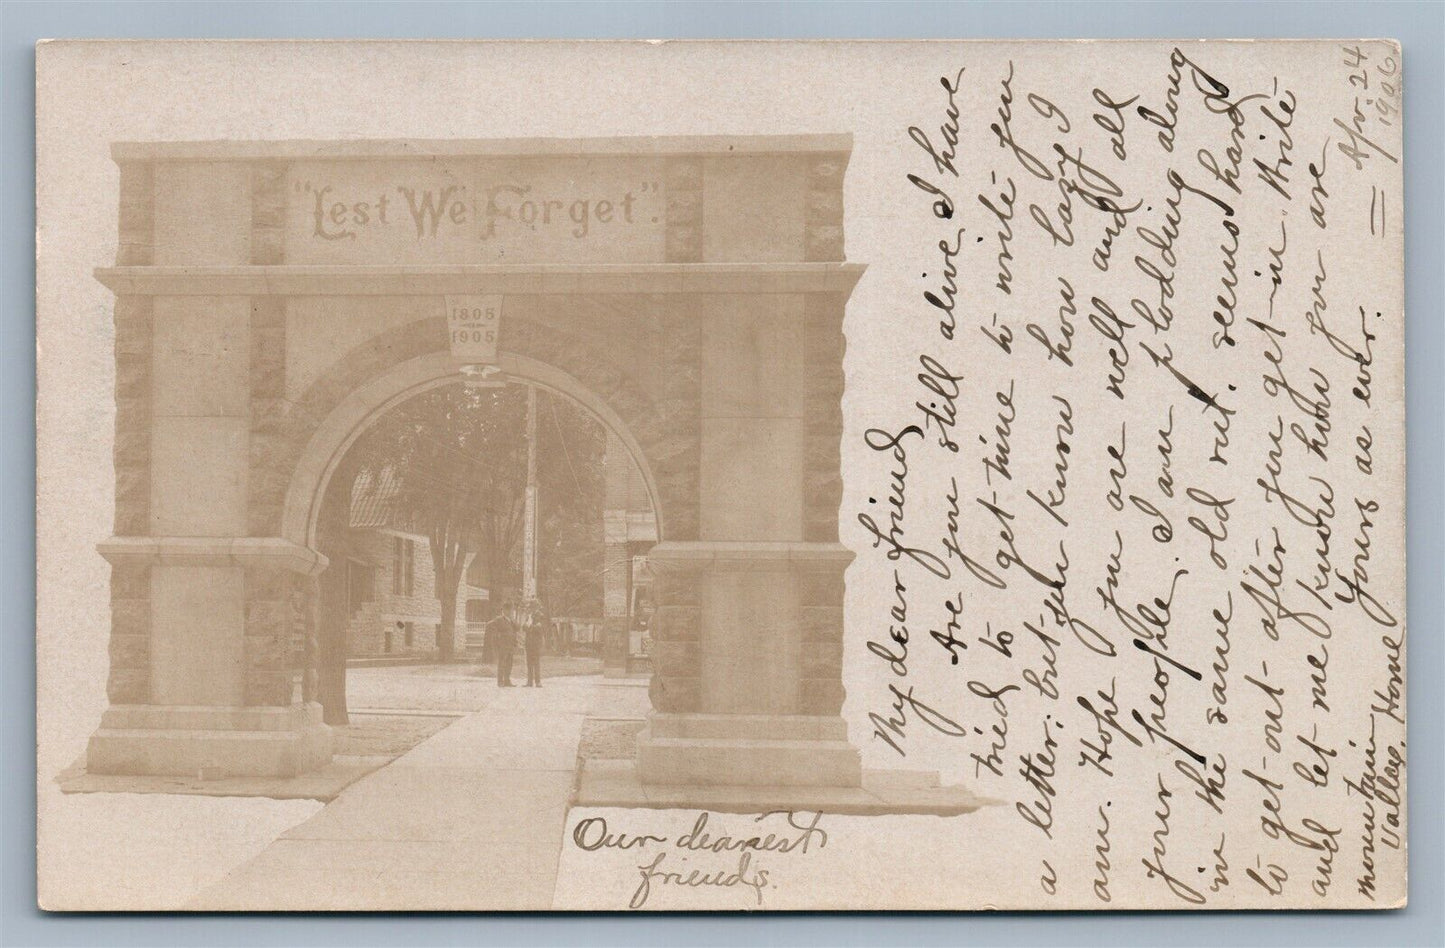 "Lest We Forget".
1805
1905
Our dearest
friends.
My dear friend
Are you still alive I have
tried to get time to write you
a letter; but you know how lazy I
am. Hope you are well and all
your people. I am plodding along
in the same old rut. seems hard
to get out after you get in. Write
and let me know how you are
Yours as ever.
Mountain
Valley Home
Apr. 24
1906